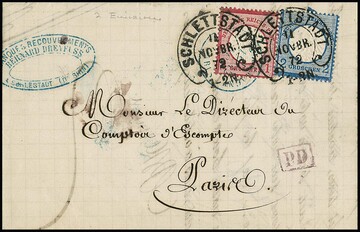 2 Einschreiben
BANQUE & RECOUVREMENTS
BERNARD DREYFUSS
A SCHLESTADT (B. RHIN)
SCHLETTSTADT
11
NOVBR.
72
1-2N
SCHLETTSTADT
11
NOVBR.
72
1-2N
GROSCHEN
Monsieur Le Directeur du
Comptoir d'Escompte
Paris
PD